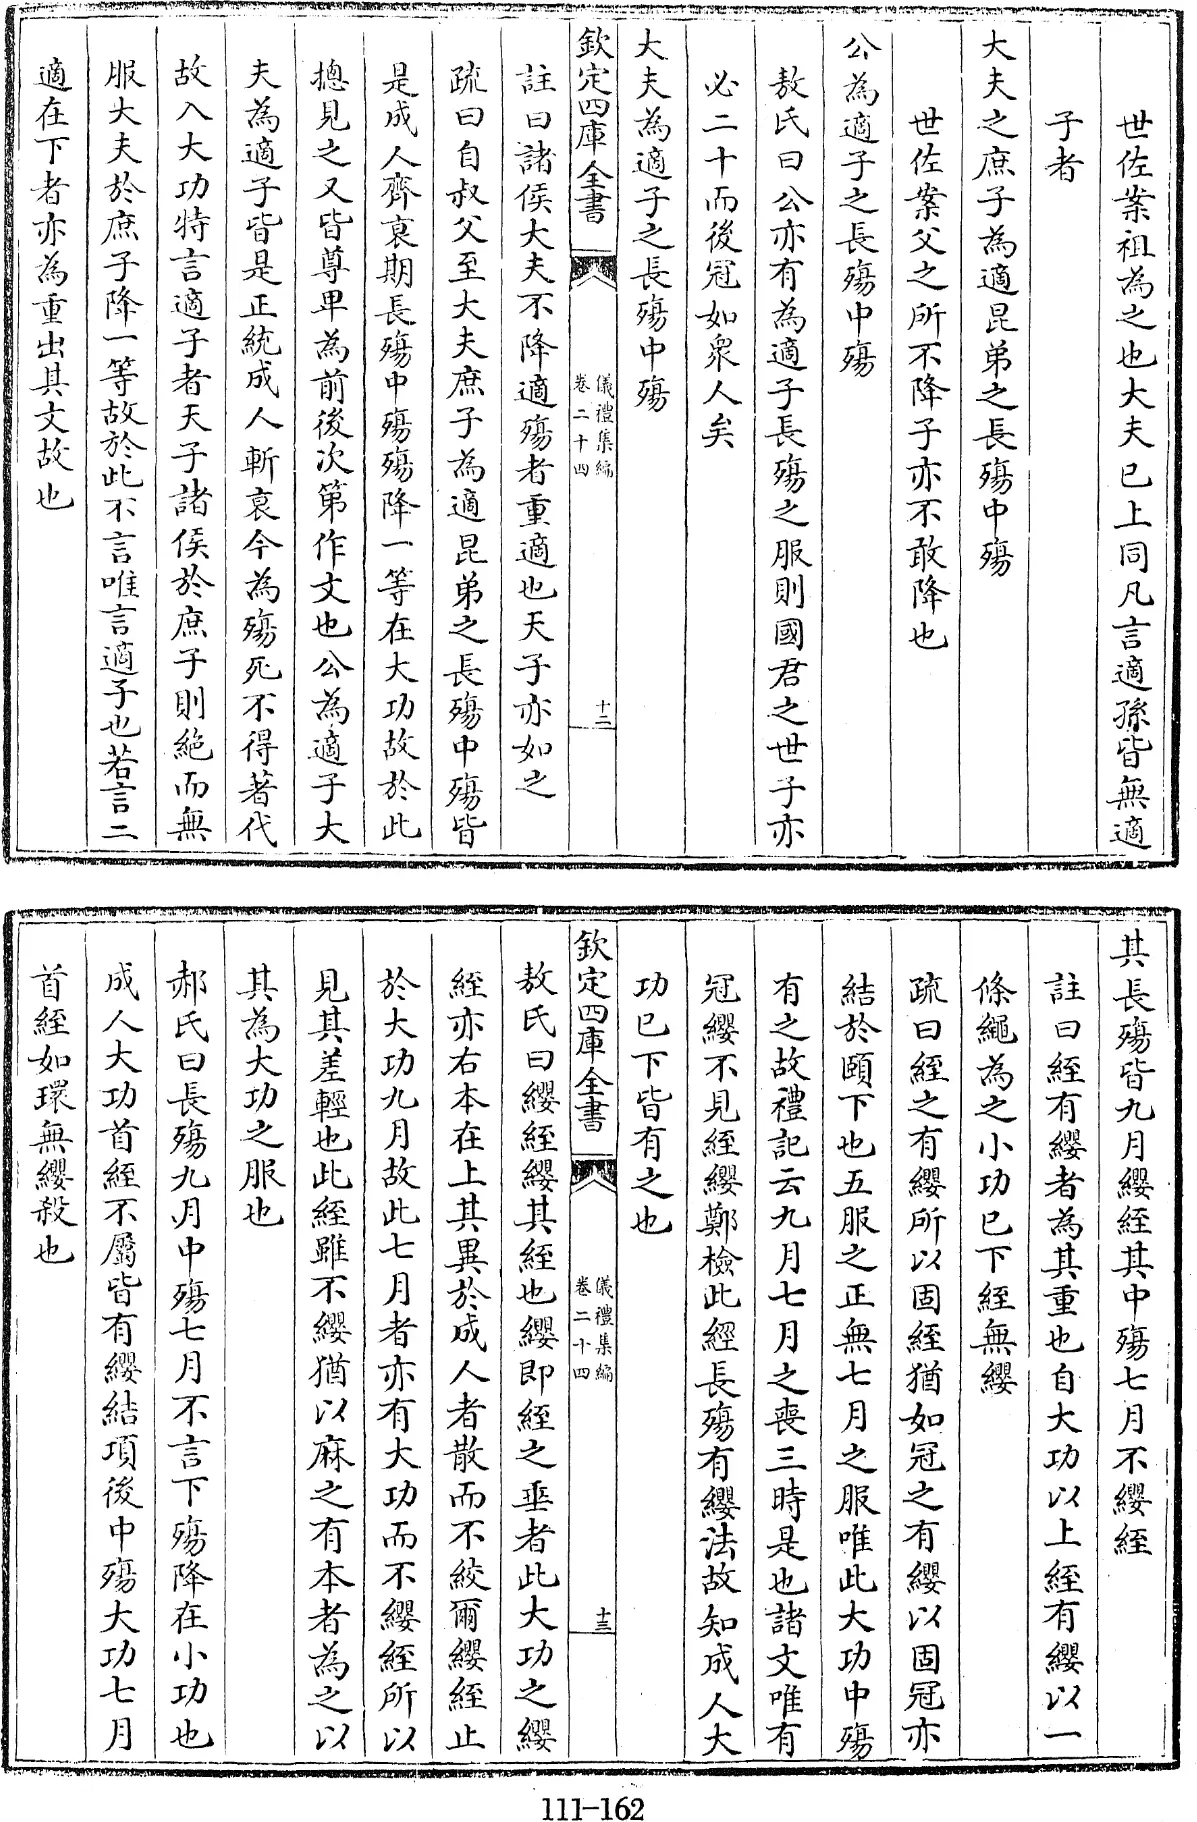 世佐案祖為之也大夫已上同凡言適孫皆無適
子者
大夫之庶子為適昆弟之長殤中殤
世佐案父之所不降子亦不敢降也
公為適子之長殤中殤
敖氏曰公亦有為適子長殤之服則國君之世子亦
必二十而後冠如衆人矣
大夫為適子之長殤中殤
欽定四庫全書
儀禮集編
卷二十四
十二
註曰諸侯大夫不降適殤者重適也天子亦如之
疏曰自叔父至大夫庶子為適昆弟之長殤中殤皆
是成人齊衰期長殤中殤殤降一等在大功故於此
摠見之又皆尊卑為前後次第作文也公為適子大
夫為適子皆是正統成人斬衰今為殤死不得著代
故入大功特言適子者天子諸侯於庶子則絶而無
服大夫於庶子降一等故於此不言唯言適子也若言二
適在下者亦為重出其文故也
其長殤皆九月纓絰其中殤七月不纓絰
註曰絰有纓者為其重也自大功以上絰有纓以一
條繩為之小功已下絰無纓
疏曰絰之有纓所以固絰猶如冠之有纓以固冠亦
結於頤下也五服之正無七月之服唯此大功中殤
有之故禮記云九月七月之喪三時是也諸文唯有
冠纓不見絰纓鄭檢此經長殤有纓法故知成人大
功已下皆有之也
欽定四庫全書
儀禮集編
卷二十四
十三
敖氏曰纓絰纓其絰也纓即絰之垂者此大功之纓
絰亦右本在上其異於成人者散而不絞爾纓絰止
於大功九月故此七月者亦有大功而不纓絰所以
見其差輕也此絰雖不纓猶以麻之有本者為之以
其為大功之服也
郝氏曰長殤九月中殤七月不言下殤降在小功也
成人大功首絰不厲皆有纓結項後中殤大功七月
首絰如環無纓殺也
111-162